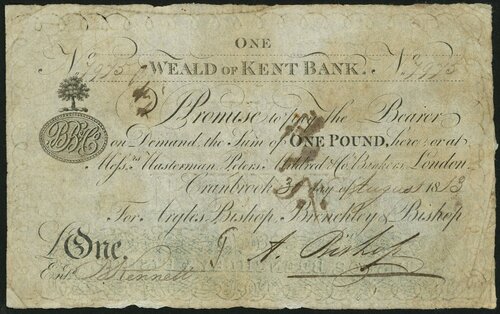 ONE
No. WEALD OF KENT BANK. No.
I Promise to pay the Bearer
on Demand, the Sum of ONE POUND, here or at
Messrs. Masterman, Peters, Mildred & Co. Bankers London.
Cranbrook 3 day of August 1813
For Argles Bishop, Brenchley & Bishop
£One. A. Bishop
Entd. Kennett